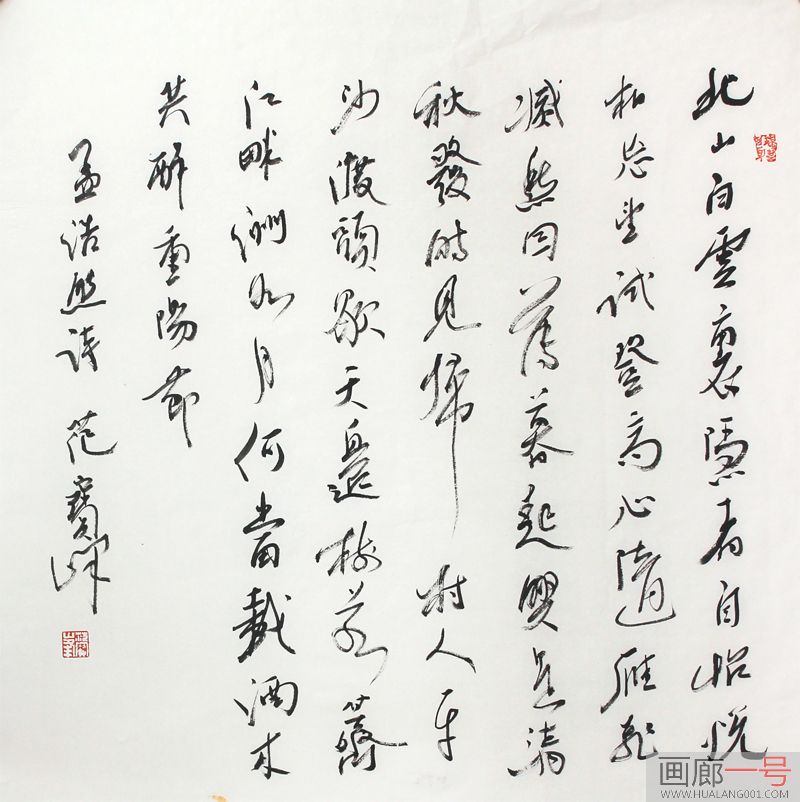 北山白雲裏隱者自怡悦
相望試登高心隨雁飛
滅愁因薄暮起興是清
秋發時見歸村人平
沙渡頭歇天邊樹若薺
江畔洲如月何當載酒來
共醉重陽節
孟浩然詩 范寶峰
画廊一号
WWW.HUALANG001.COM